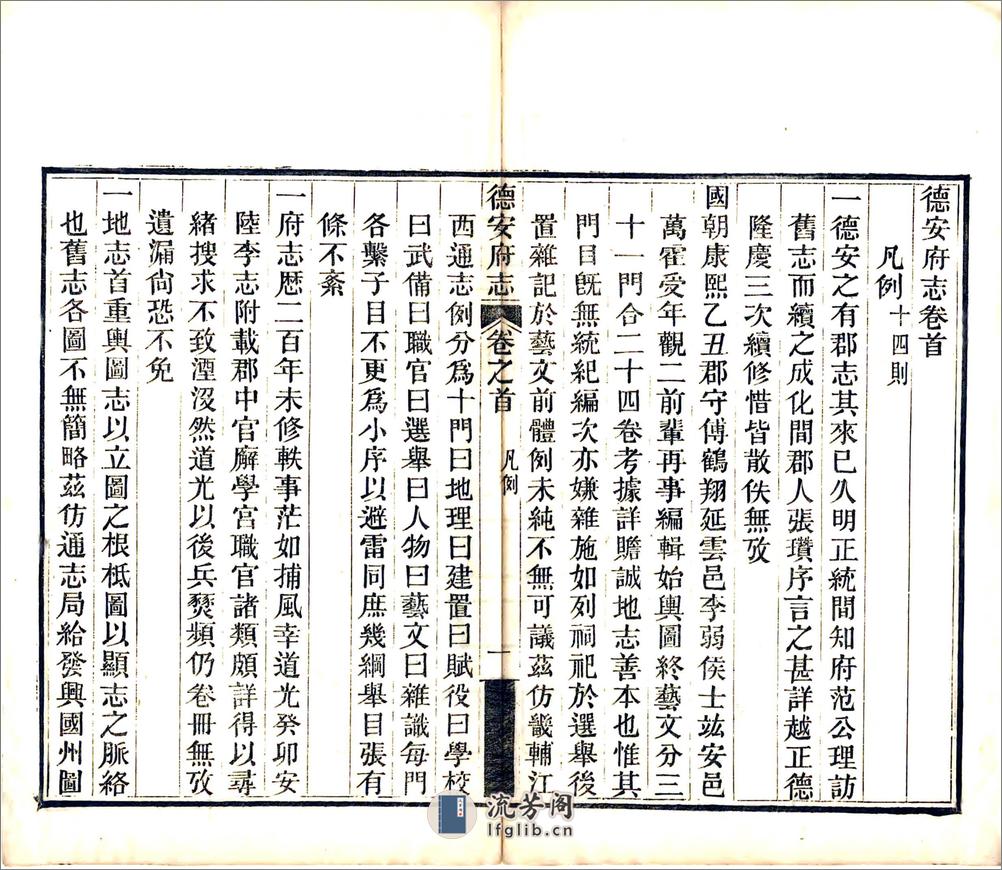 德安府志卷首
凡例十四則
一德安之有郡志其來已久明正統間知府范公理訪
舊志而續之成化間郡人張瓚序言之甚詳越正德
隆慶三次續修惜皆散佚無攷
國朝康熙乙丑郡守傅鶴翔延雲邑李弱侯士竑安邑
萬霍受年觀二前輩再事編輯始輿圖終藝文分三
十一門合二十四卷考據詳贍誠地志善本也惟其
門目旣無統紀編次亦嫌雜施如列祠祀於選舉後
置雜記於藝文前體例未純不無可議茲仿畿輔江
德安府志 卷之首 凡例 一
西通志例分爲十門曰地理曰建置曰賦役曰學校
曰武備曰職官曰選舉曰人物曰藝文曰雜識每門
各繫子目不更爲小序以避雷同庶幾綱舉目張有
條不紊
一府志歷二百年未修軼事茫如捕風幸道光癸卯安
陸李志附載郡中官廨學宮職官諸類頗詳得以尋
緒搜求不致湮沒然道光以後兵燹頻仍卷冊無攷
遺漏尙恐不免
一地志首重輿圖志以立圖之根柢圖以顯志之脈絡
也舊志各圖不無簡略茲仿通志局給發興國州圖
流芳阁
lfglib.cn